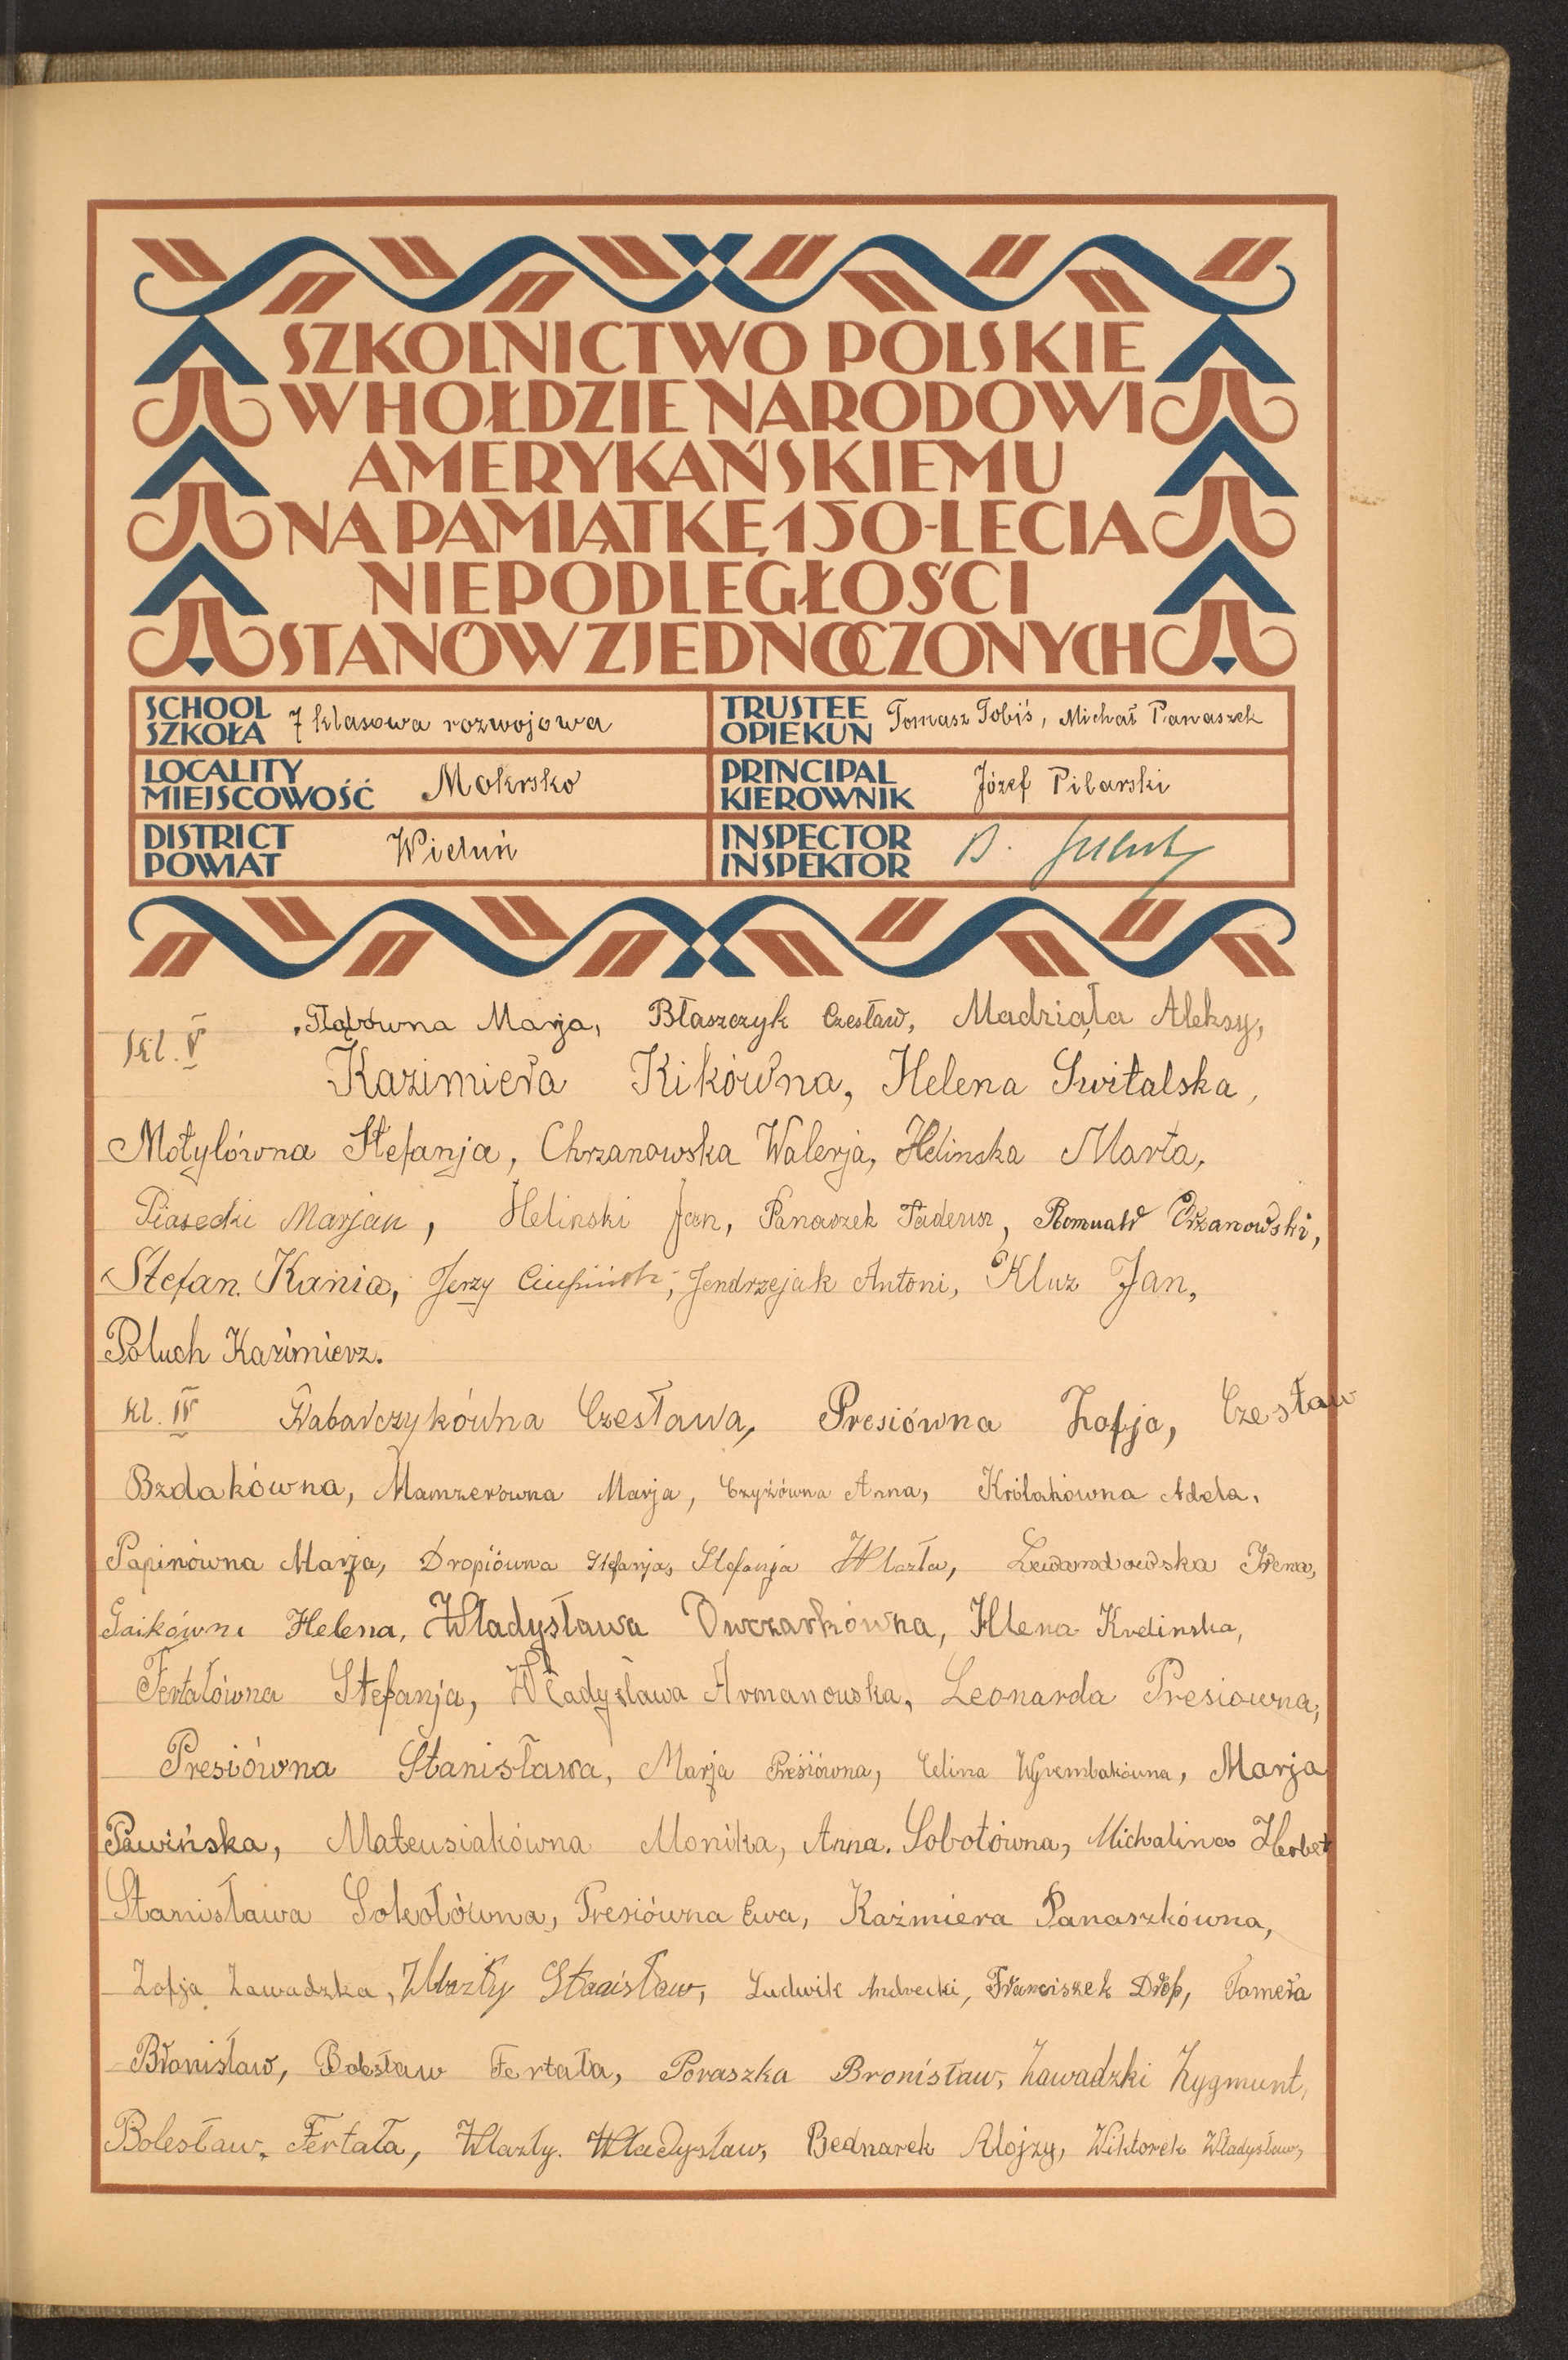 SZKOLNICTWO POLSKIE
W HOŁDZIE NARODOWI
AMERYKAŃSKIEMU
NA PAMIĄTKĘ 150-LECIA
NIEPODLEGŁOŚCI
STANÓW ZJEDNOCZONYCH
SCHOOL SZKOŁA 7 klasowa rozwojowa
TRUSTEE OPIEKUN Tomasz Tobiś, Michał Panaszek
LOCALITY MIEJSCOWOŚĆ Mokrsko
PRINCIPAL KIEROWNIK Józef Pilarski
DISTRICT POWIAT Wieluń
INSPECTOR INSPEKTOR B.
Kl. V Głąbówna Marja, Błaszczyk Czesław, Madziąła Aleksy,
Kazimiera Kikówna, Helena Switalska,
Motylówna Stefanja, Chrzanowska Walerja, Helinska Marta,
Piasecki Marjan, Helinski Jan, Panaszek Tadeusz, Romuald Chrzanowski,
Stefan. Kania, Jerzy, Jendrzejak Antoni, Kluz Jan,
Poluch Kazimierz.
Kl. IV Grabarczykówna Czesława, Presiówna Zofja, Czesław
Bzdakówna, Mamzerowna Marja, Czyżówna Anna, Królakówna Adela,
Papinówna Marja, Dropiówna Stefanja, Stefanja Wlazła, Lewandowska Irena,
Gaikówna Helena, Władysława Owczarkówna, Hlena Kvelinska,
Fertałówna Stefanja, Władysława Armanowska, Leonarda Presiowna,
Presiówna Stanisława, Marja Preśiówna, Celina Wyrembakówna, Marja
Pawińska, Mateusiakówna Monika, Anna. Sobotówna, Michalina Herbet
Stanisława Sokołówna, Presiówna Ewa, Kaźmiera Panaszkówna,
Zofja Zawadzka, Wlazły Staaisław, Ludwik Andrecki, Franciszek Drop, Tamera
Bronisław, Bolesław Fertała, Poraszka Bronisław, Zawadzki Zygmunt,
Bolesław. Fertała, Wlazły. Władysław, Bednarek Alojzy, Wiktorek Władysław,